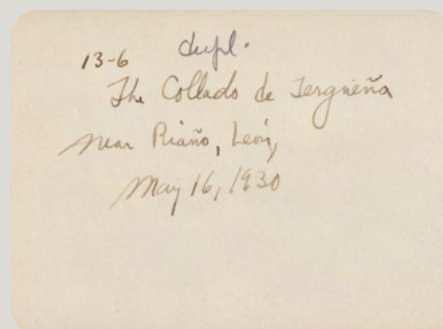 13-6 dupl.
The Collado de Tergueña
near Riaño, León,
May 16, 1930